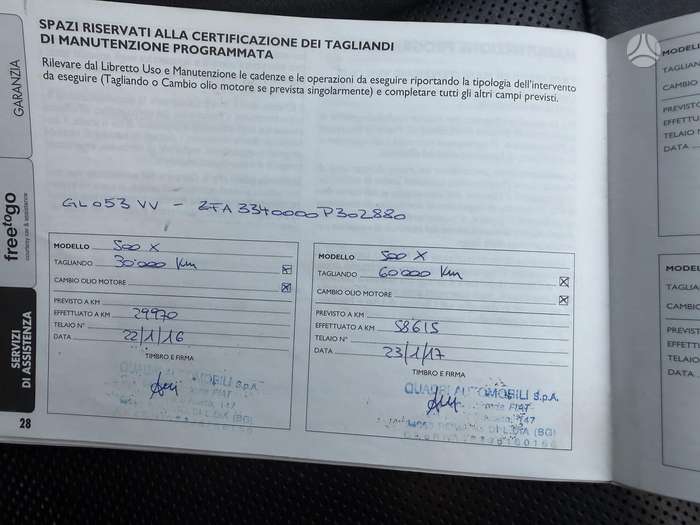 SPAZI RISERVATI ALLA CERTIFICAZIONE DEI TAGLIANDI
DI MANUTENZIONE PROGRAMMATA
Rilevare dal Libretto Uso e Manutenzione le cadenze e le operazioni da eseguire riportando la tipologia dell'intervento
da eseguire (Tagliando o Cambio olio motore se prevista singolarmente) e completare tutti gli altri campi previsti.
GARANZIA
freetogo
courtesy car & assistance
SERVIZI
DI ASSISTENZA
28
GL053VV - ZFA3340000P302880
MODELLO 500 X
TAGLIANDO 30.000 Km
CAMBIO OLIO MOTORE
PREVISTO A KM
EFFETTUATO A KM 29970
TELAIO N°
DATA 22/1/16
TIMBRO E FIRMA
MOBILI S.p.A.
FIAT
147
(BG)
MODELLO 500 X
TAGLIANDO 60000 Km
CAMBIO OLIO MOTORE
PREVISTO A KM
EFFETTUATO A KM 58615
TELAIO N°
DATA 23/1/17
TIMBRO E FIRMA
QUADRI AUTOMOBILI S.p.A.
FIAT
147
(BG)
MODELLO
TAGLIAN
CAMBIO
PREVISTO
EFFETTU
TELAIO
DATA
MODEL
TAGLIA
CAMBI
PREVIST
EFFETT
TELAI
DATA